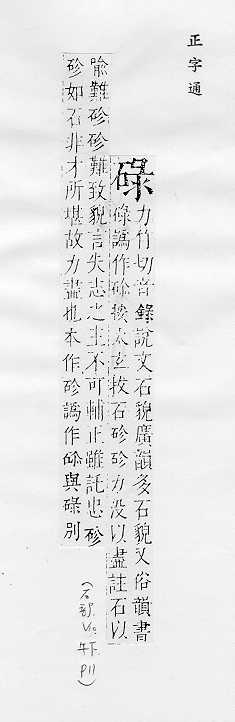 正字通
碌
力竹切音錄說文石貌廣韻多石貌又俗韻書
碌譌作砛按太玄數石砎砎力没以盡註石以
喻難砎砎難致貌言失志之主不可輔正雖託忠砎
砎如石非才所堪故力盡也本作砎譌作砛與碌別
(石部
午下
P11)